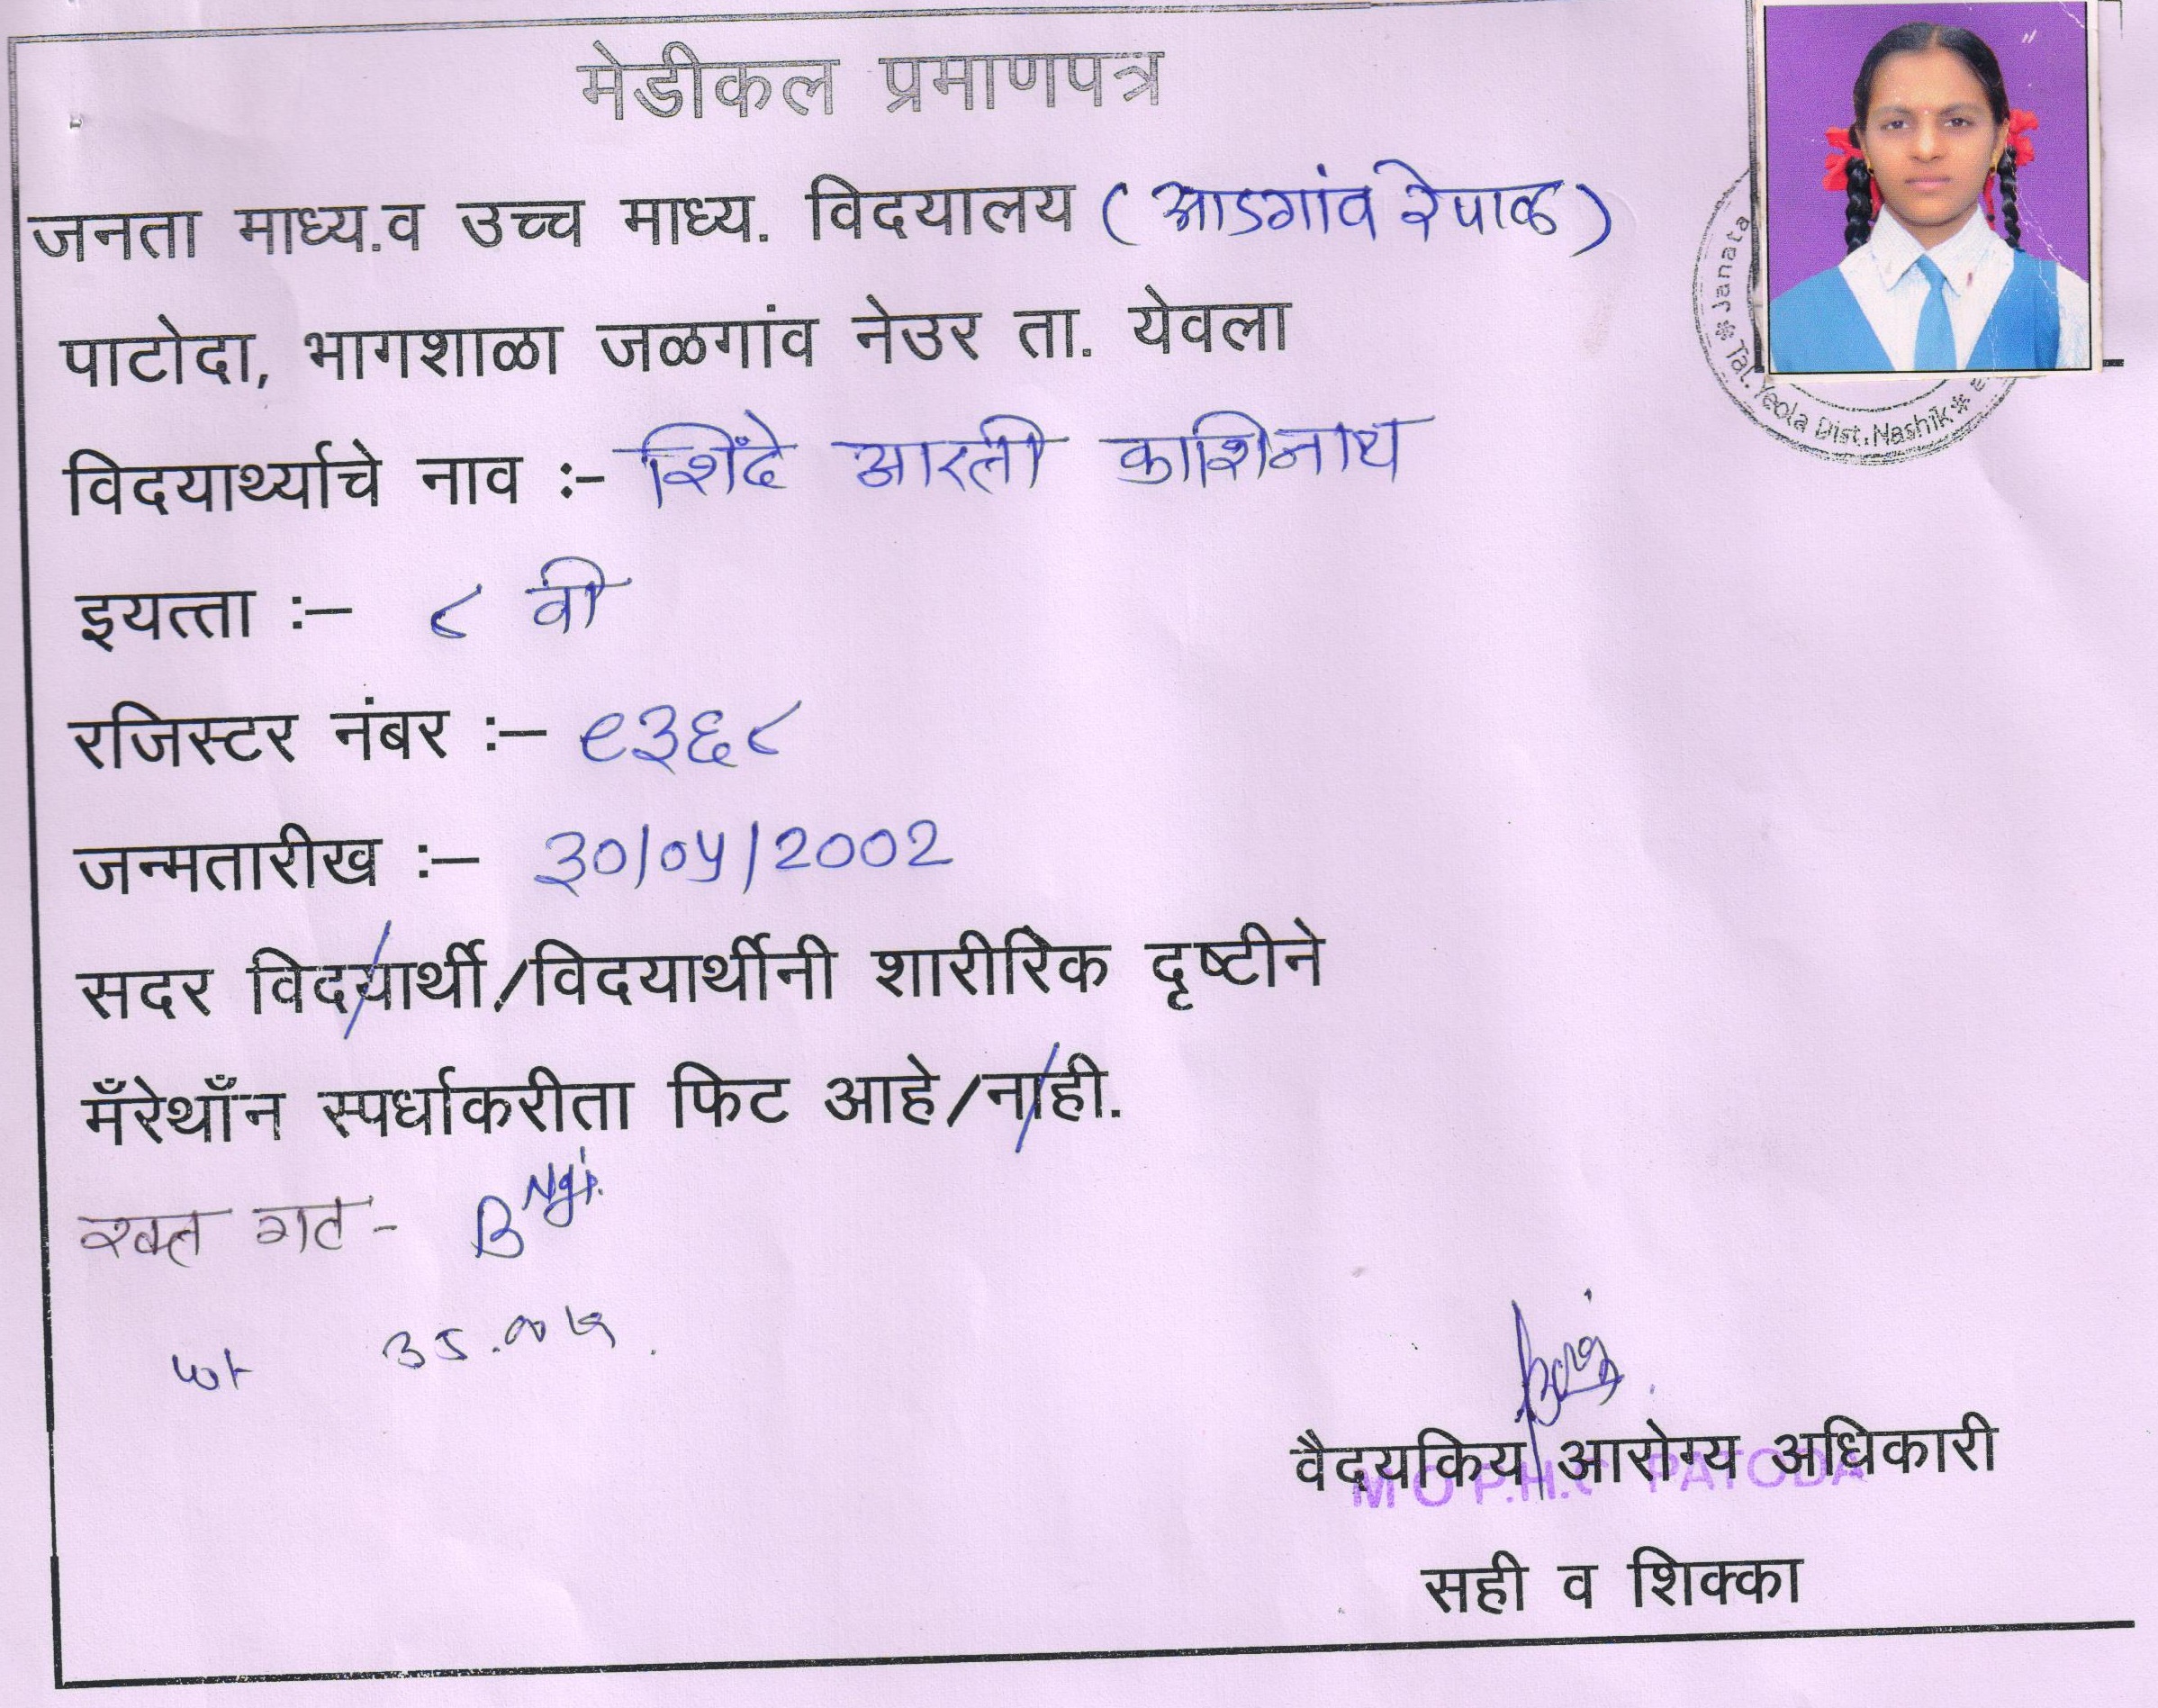 मेडीकल प्रमाणपत्र
जनता माध्य.व उच्च माध्य. विदयालय (आडगांव रेपाळ)
पाटोदा, भागशाळा जळगांव नेउर ता. येवला
Janata
Tal. Yeola Dist. Nashik
विदयार्थ्याचे नाव :- शिंदे आरती काशिनाथ
इयत्ता :- ८ वी
रजिस्टर नंबर :- ९३६८
जन्मतारीख :- ३०/०५/2002
सदर विदयार्थी/विदयार्थीनी शारीरिक दृष्टीने
मँरेथाँन स्पर्धाकरीता फिट आहे/नाही.
रक्त गट - B
wt 35.
वैदयकिय आरोग्य अधिकारी
M O P.H.C PATODA
सही व शिक्का